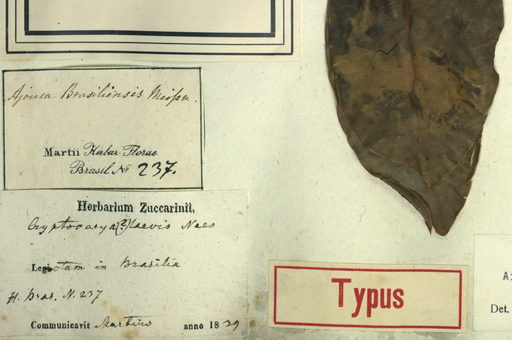 Ajouea Brasiliensis Meissn.
Martii Herbar. Florae
Brasil. No 237.
Herbarium Zuccarinii.
Cryptocarya (?) laevis Nees
Legi in Brasilia
H. Bras. N. 237
Communicavit Martius anno 1839
Typus
A:
Det.